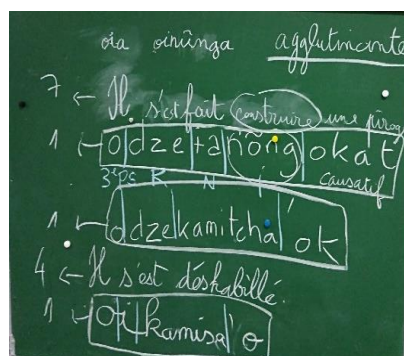 oia oinũnga agglutinante
7 ← Il s'est fait construire une pirog
1 ← o|dze|ta|ñõng|okat
3e ps R N i causatif
1 ← o|dze|kamitcha|'ok
4 ← Il s'est déshabillé.
1 ← oi|kamisa|'o